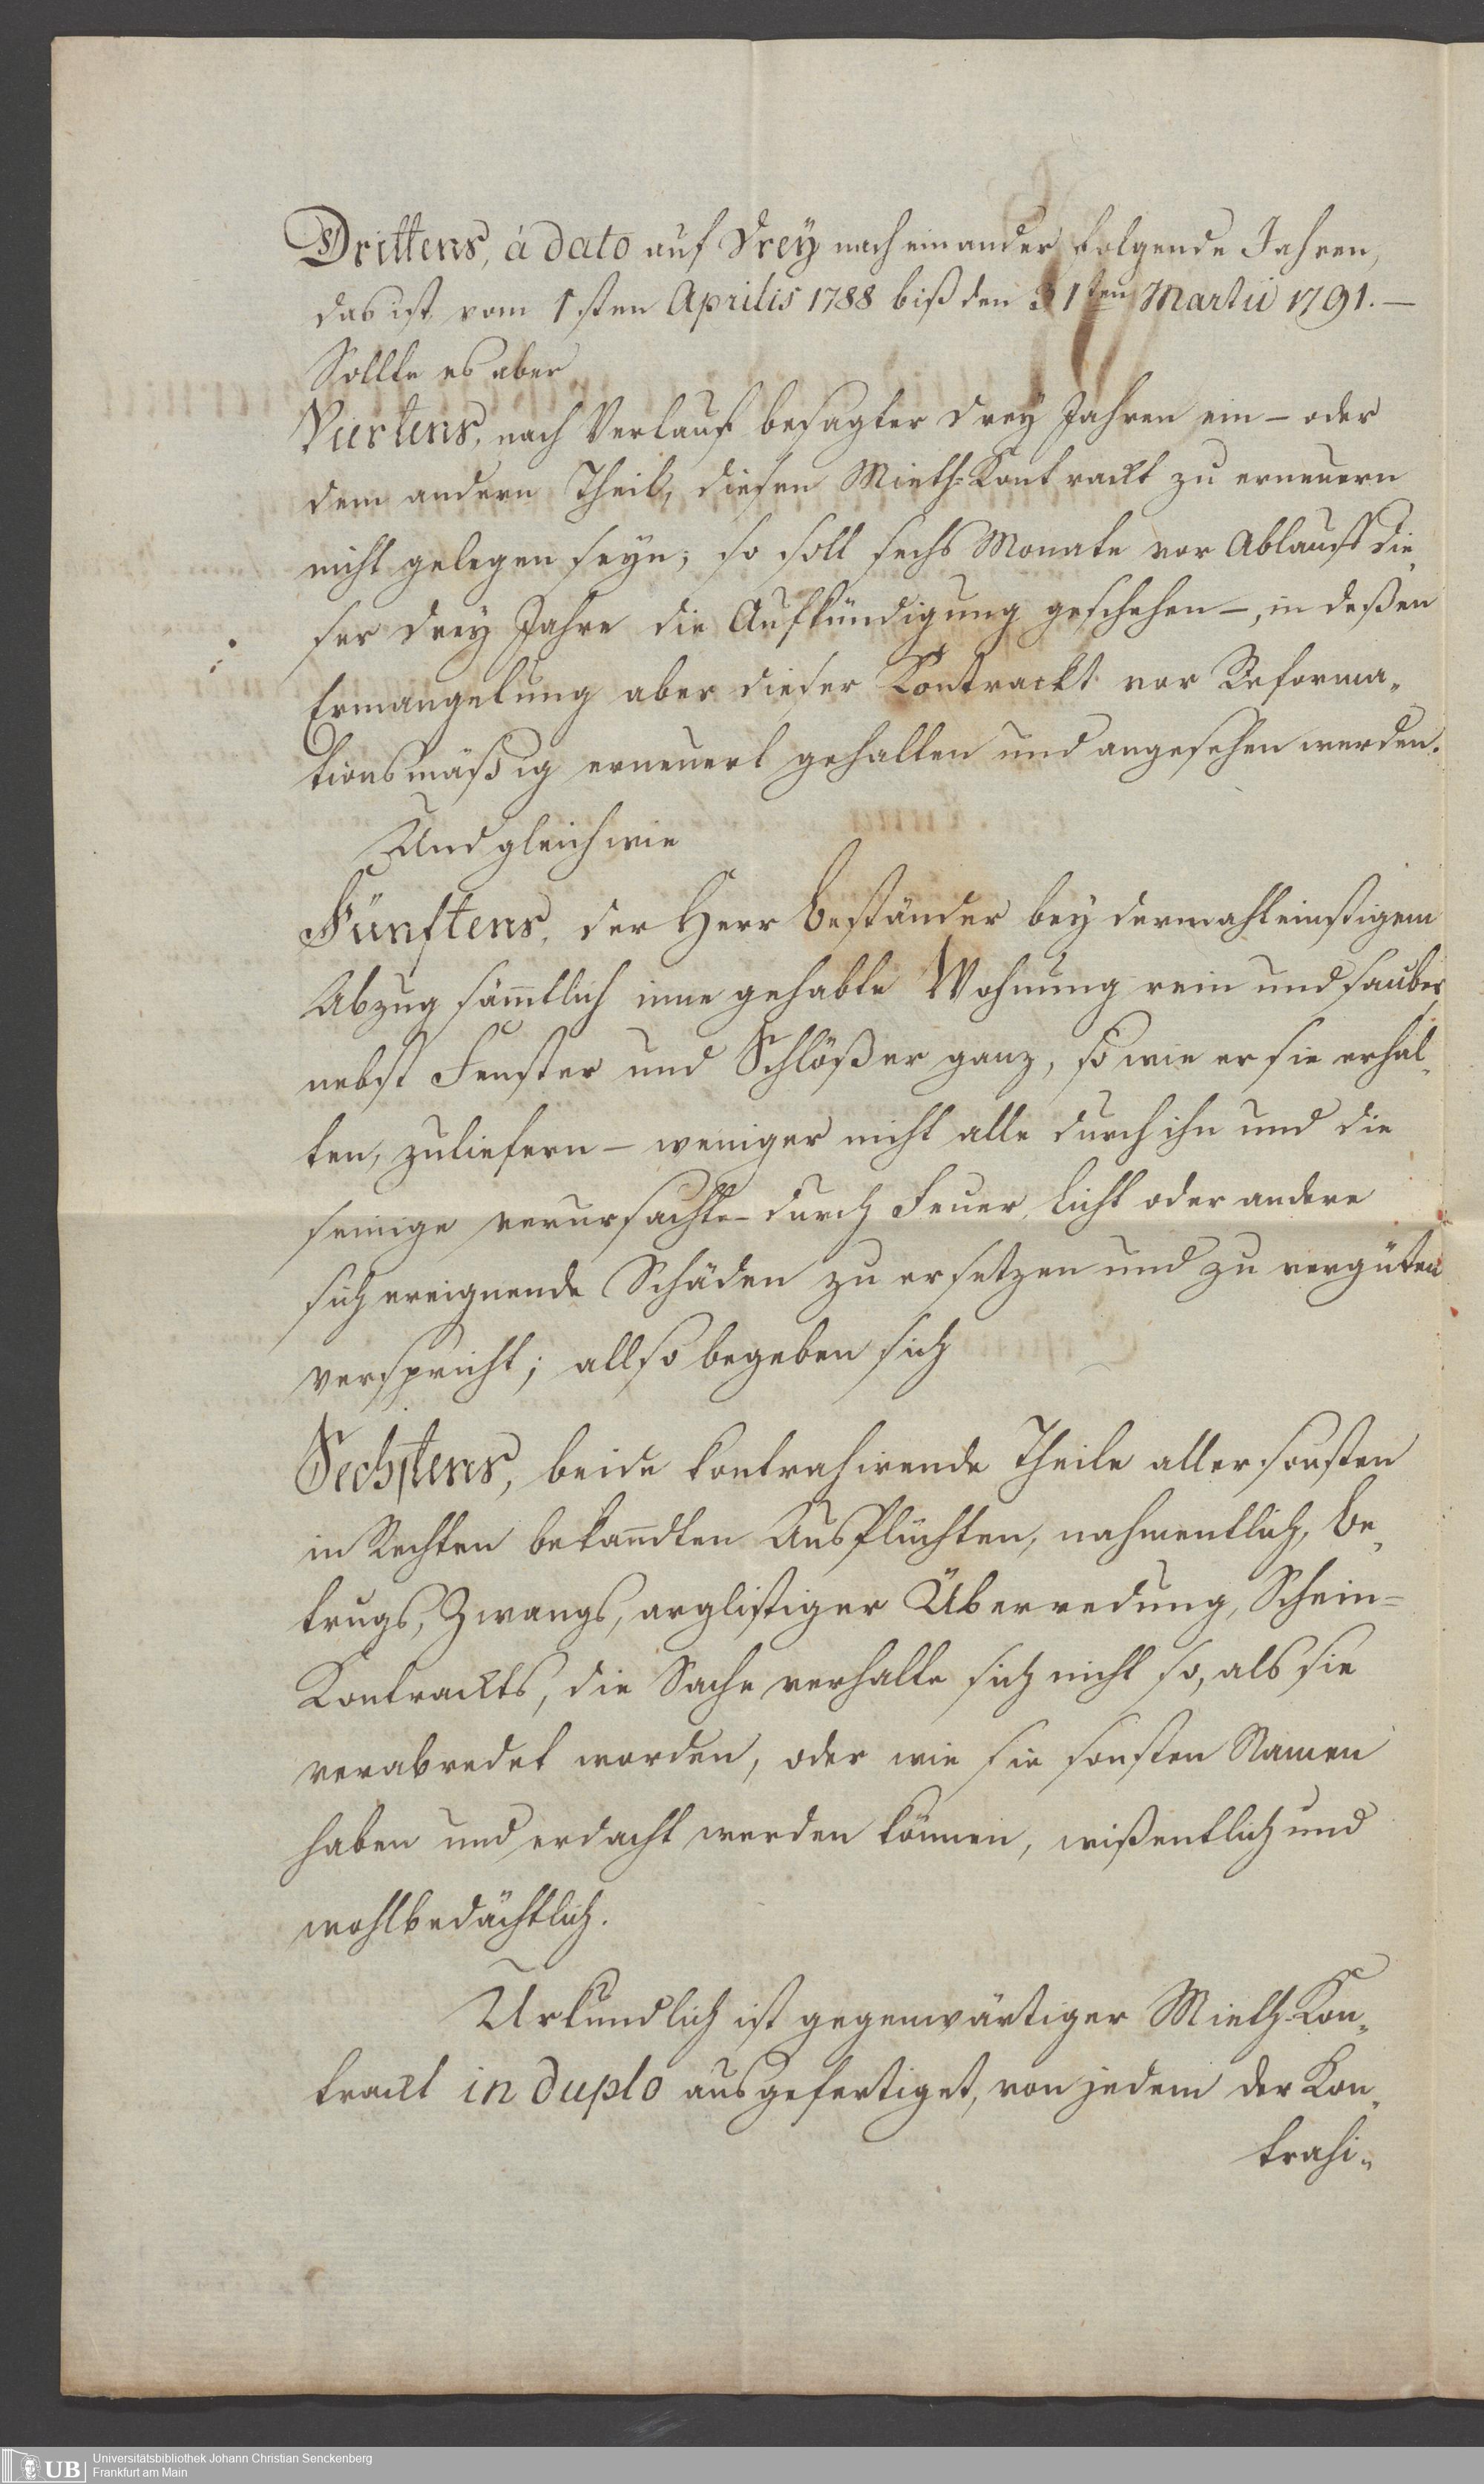 Drittens, à dato auf drey nach einander folgende Jahren,
das ist vom 1sten Aprilis 1788 biß den 31ten Martii 1791. —
Sollte es aber
Viertens, nach Verlauf besagter drey Jahren ein – oder
dem andern Theil, diesen Mieth-Kontrackt zu erneuern
nicht gelegen seyn; so soll sechs Monate vor Ablauff die„
ser drey Jahre die Aufkündigung geschehen –, in deßen
Ermangelung aber dieser Kontrackt vor Reforma„
tionsmäßig erneuert gehalten und angesehen werden.
Und gleichwie
Fünftens, der Herr Beständer bey dermahleinstigem
Abzug sämtlich inne gehabte Wohnung rein und sauber,
nebst Fenster und Schlößer ganz, so wie er sie erhal„
ten, zuliefern – weniger nicht alle durch ihn und die
seinige verursachte – durch Feuer, Licht oder andere
sich ereignende Schäden zu ersetzen und zu vergüten
verspricht; allso begeben sich
Sechstens, beide kontrahirende Theile aller sonsten
in Rechten bekandten Ausflüchten, nahmentlich, Be„
trugs, Zwangs, arglistiger Überredung, Schein=
Kontrackts, die Sache verhalte sich nicht so, als sie
verabredet worden, oder wie sie sonsten Namen
haben und erdacht werden können, wißentlich und
wohlbedächtlich.
Urkundlich ist gegenwärtiger Mieth-Kon„
trackt in duplo ausgefertiget, von jedem der Kon„
trahi„
UB
Universitätsbibliothek Johann Christian Senckenberg
Frankfurt am Main